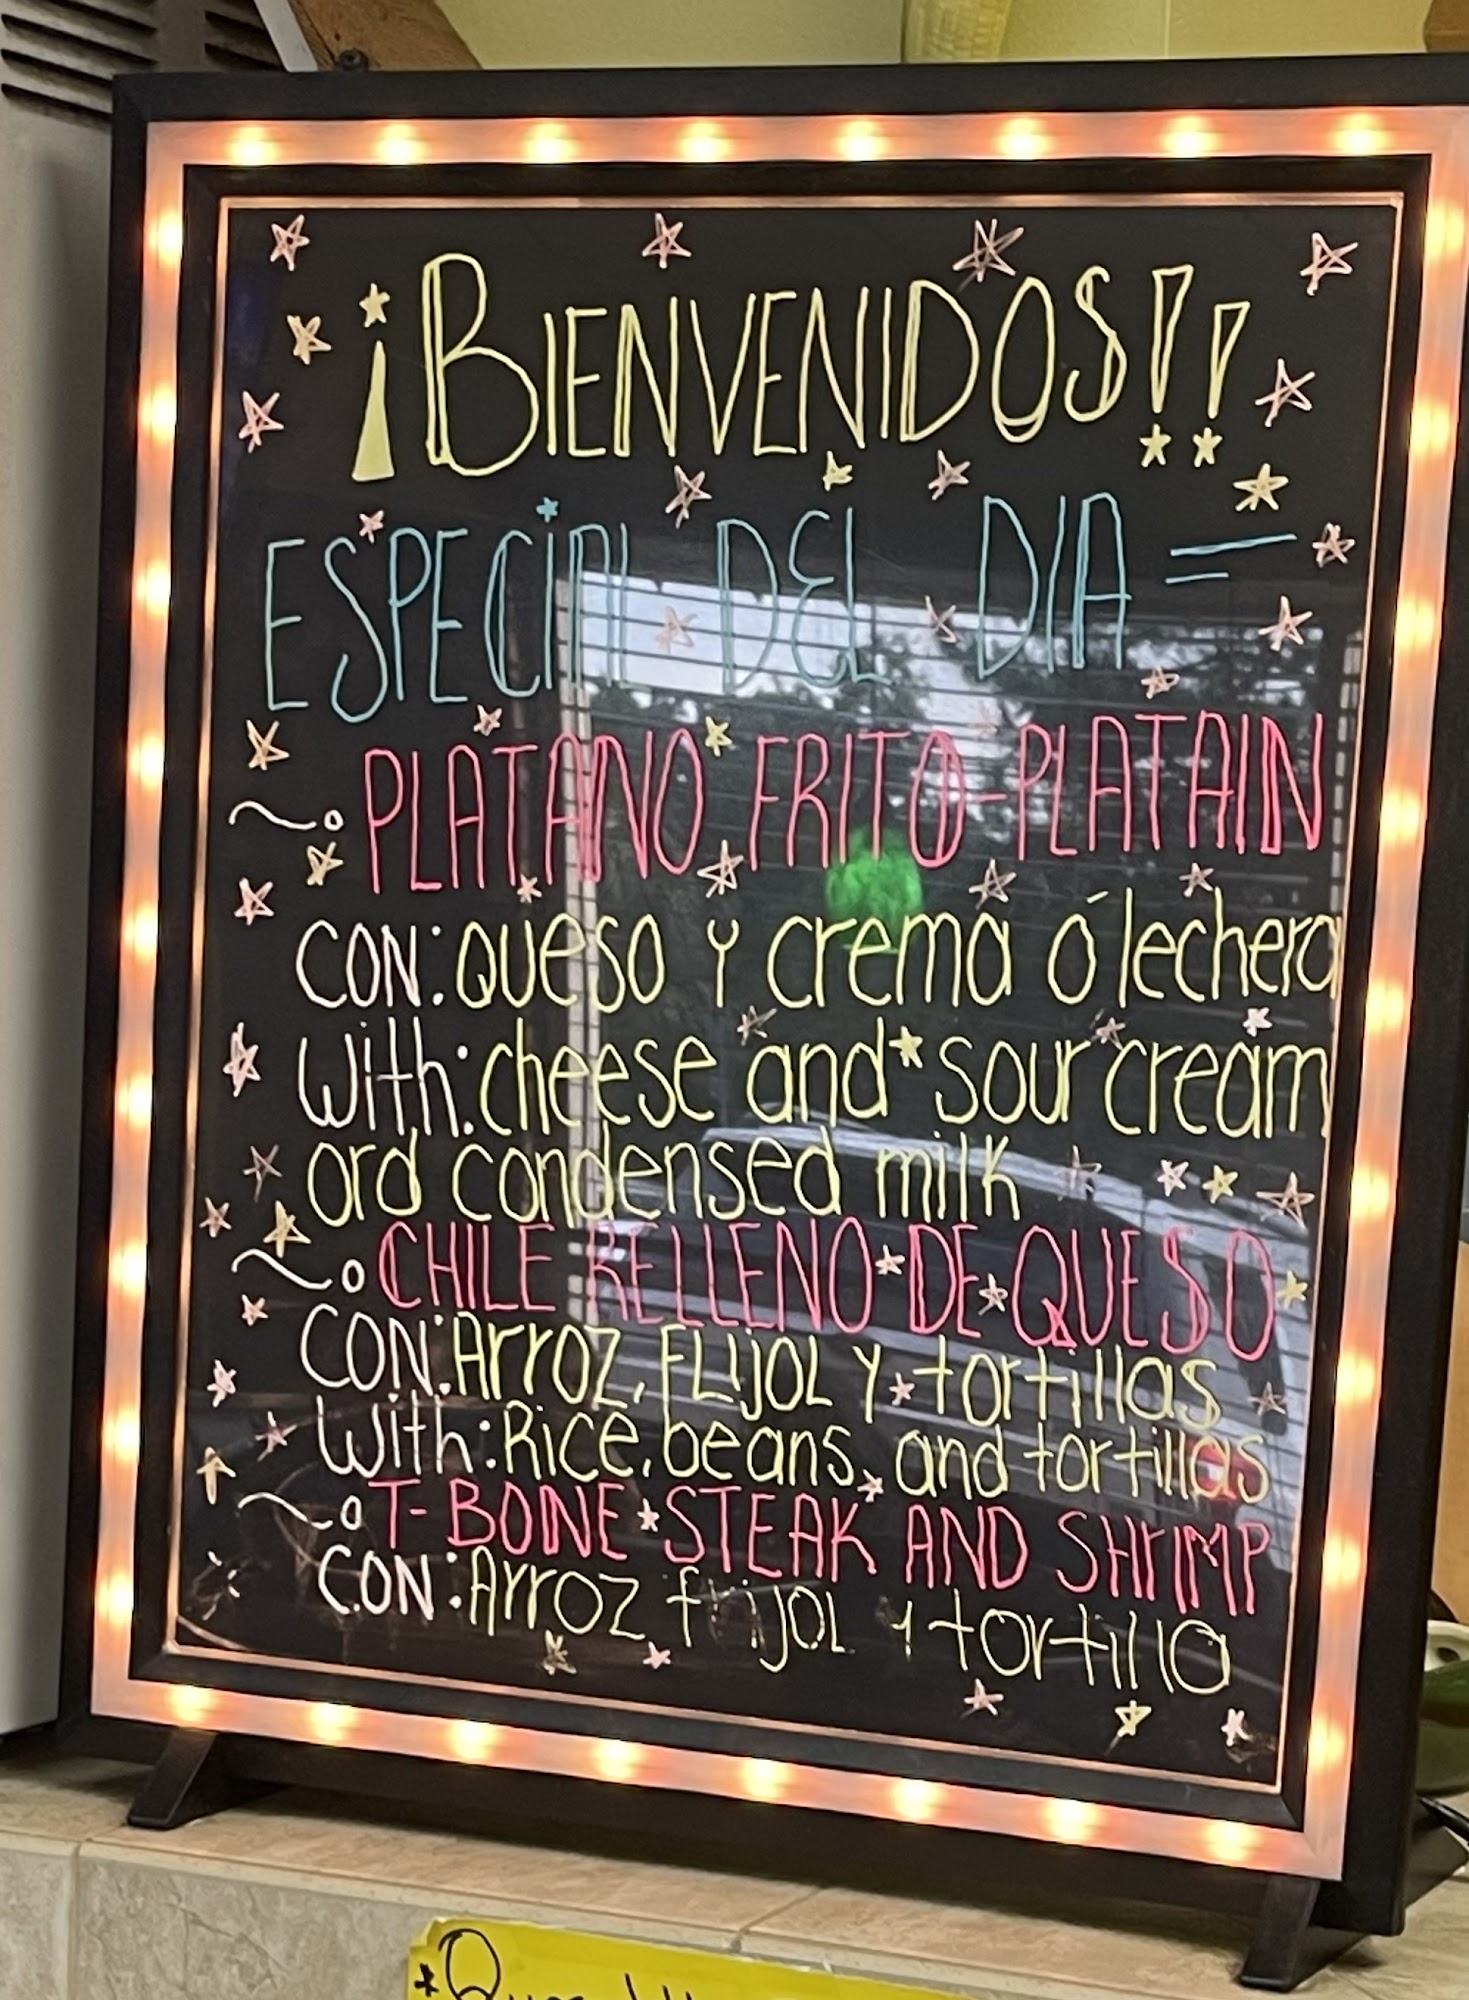 ¡BIENVENIDOS!!
ESPECIAL DEL DIA =
PLATANO FRITO-PLATAIN
CON: QUESO Y crema ó lechera
With: cheese and sour cream
ord condensed milk
CHILE RELLENO DE QUESO
CON: Arroz, FLijOL Y tortillas
With: Rice, beans, and tortillas
T-BONE STEAK AND SHrIMP
CON: Arroz frijOL Y tortilla